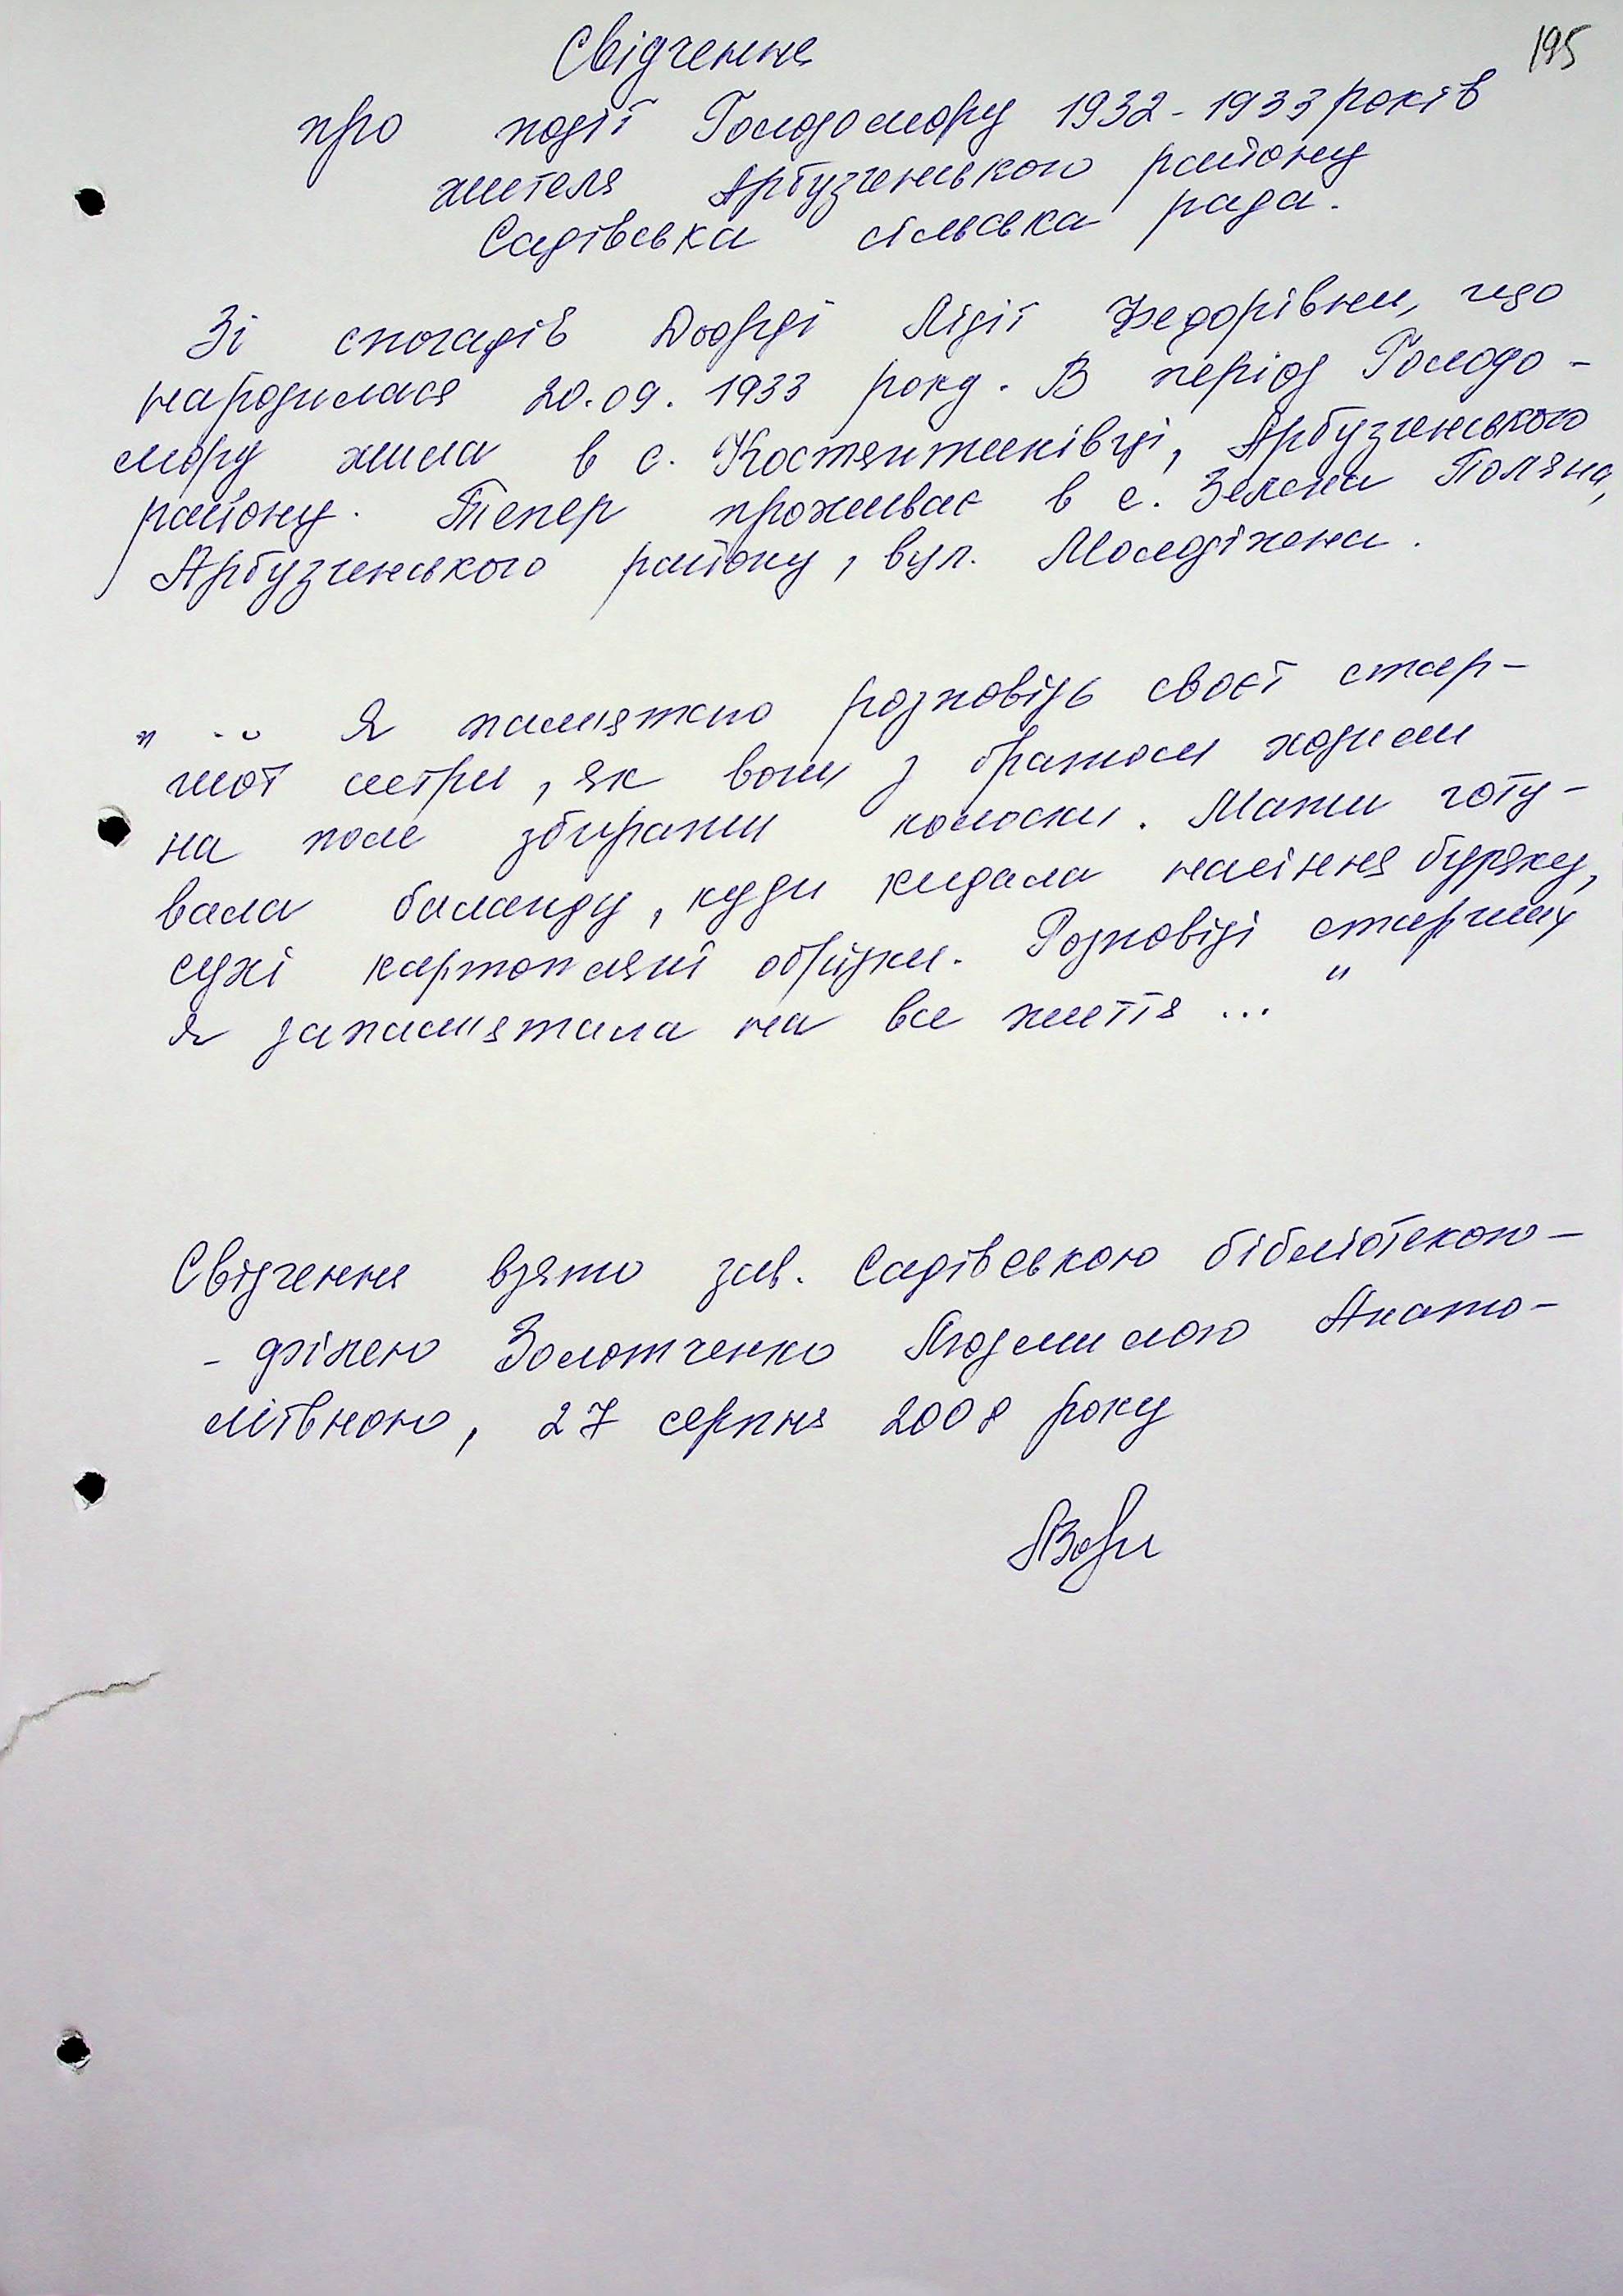 195
Свідчення
про події Голодомору 1932-1933 років
жителя Арбузинського району
Садівська сільська рада.
Зі спогадів Лідії Федорівни, що
народилася 20.09.1933 року. В період Голодо-
мору жила в с. Костянтинівці, Арбузинського
району. Тепер проживає в с. Зелена Поляна,
Арбузинського району, вул. Молодіжна.
" .. Я памятаю розповідь своєї стар-
шої сестри, як вони з братом ходили
на поле збирати колоски. Мати готу-
вала баланду, куди кидала насіння буряку,
сухі картопляні обрізки. Розповіді старших
я запамятала на все життя ... "
Свідчення взято зав. Садівською бібліотекою-
- філією Золотченко Людмилою Анато-
ліївною, 27 серпня 2008 року